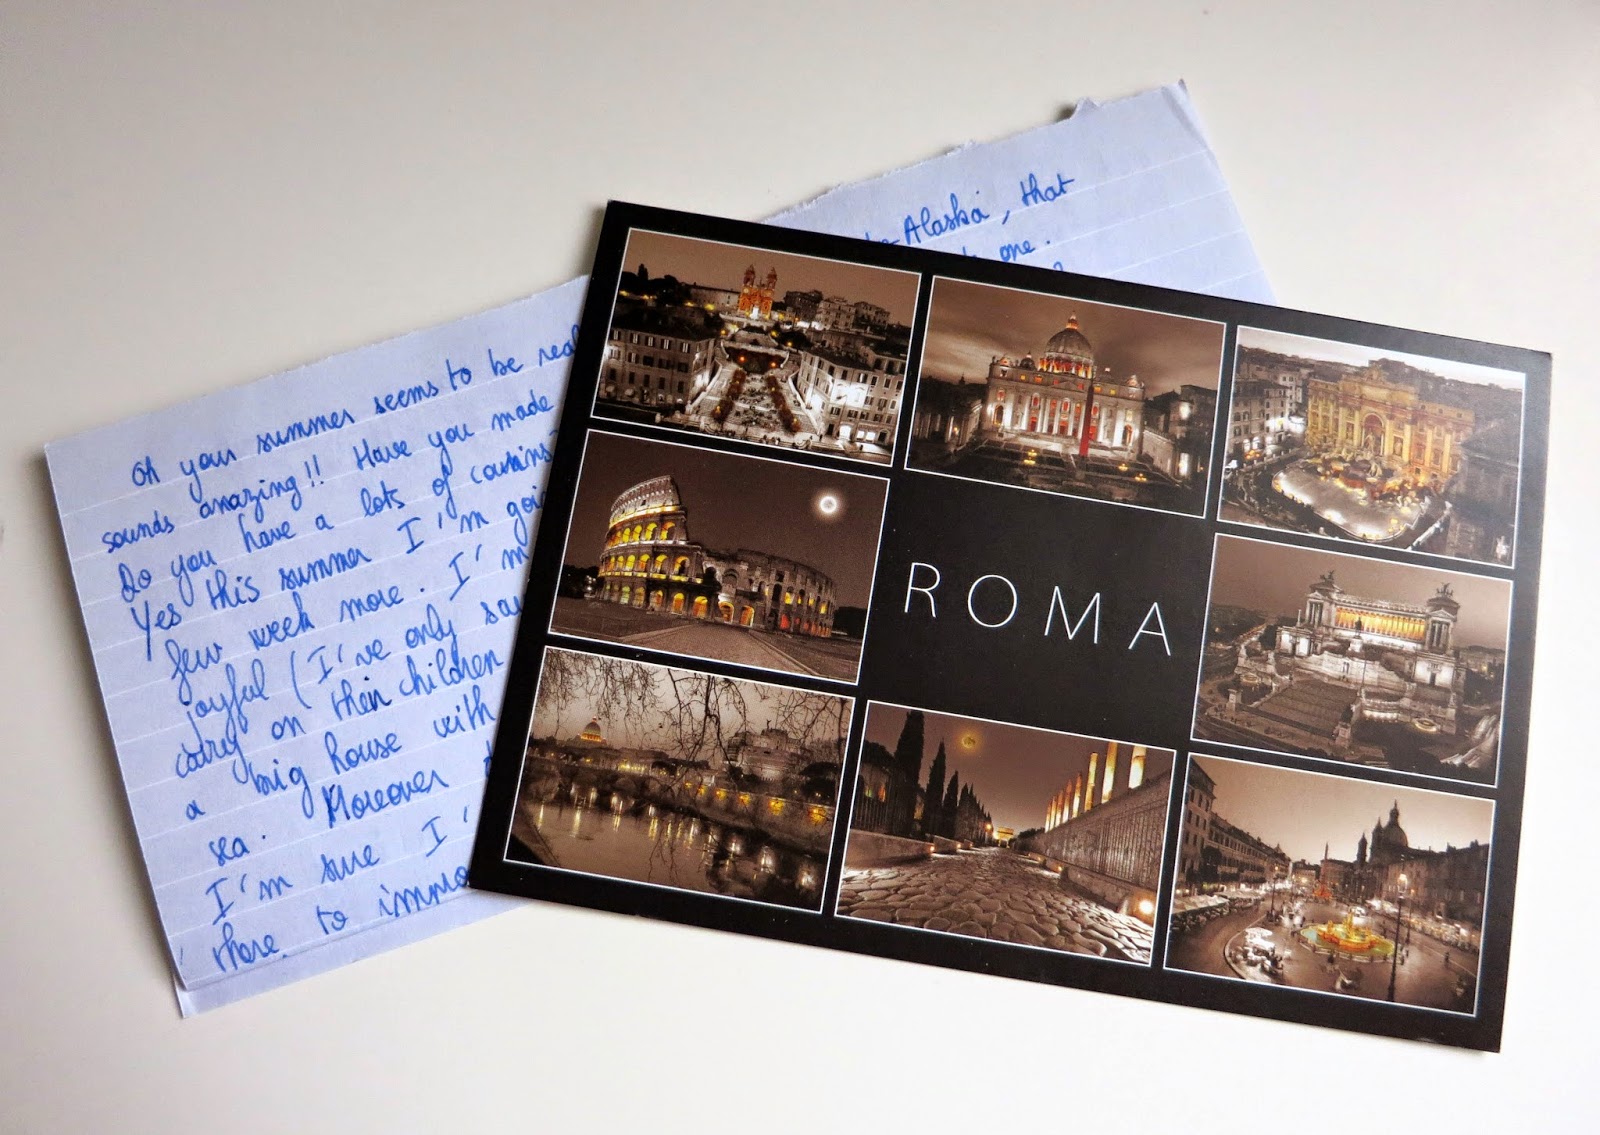 Alaska, that
one.
?
Oh your summer seems to be real
sounds amazing!! Have you made
Do you have a lots of cousins
Yes this summer I'm goi
few week more. I'm
joyful (I've only sa
carry on their children
a big house with
sea. Moreover
I'm sure I'
there to immo
ROMA